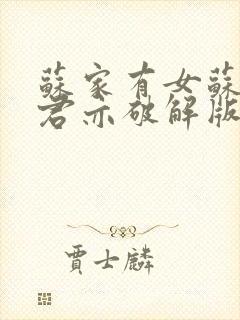 蘇家有女蘇
君亦破解版
賈士麟